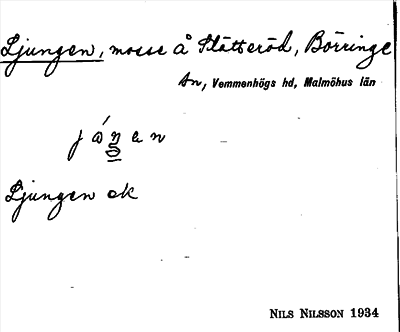 Ljungen, mosse å Slätteröd, Börringe
sn, Vemmenhögs hd, Malmöhus län
Ljungen ek
NILS NILSSON 1934